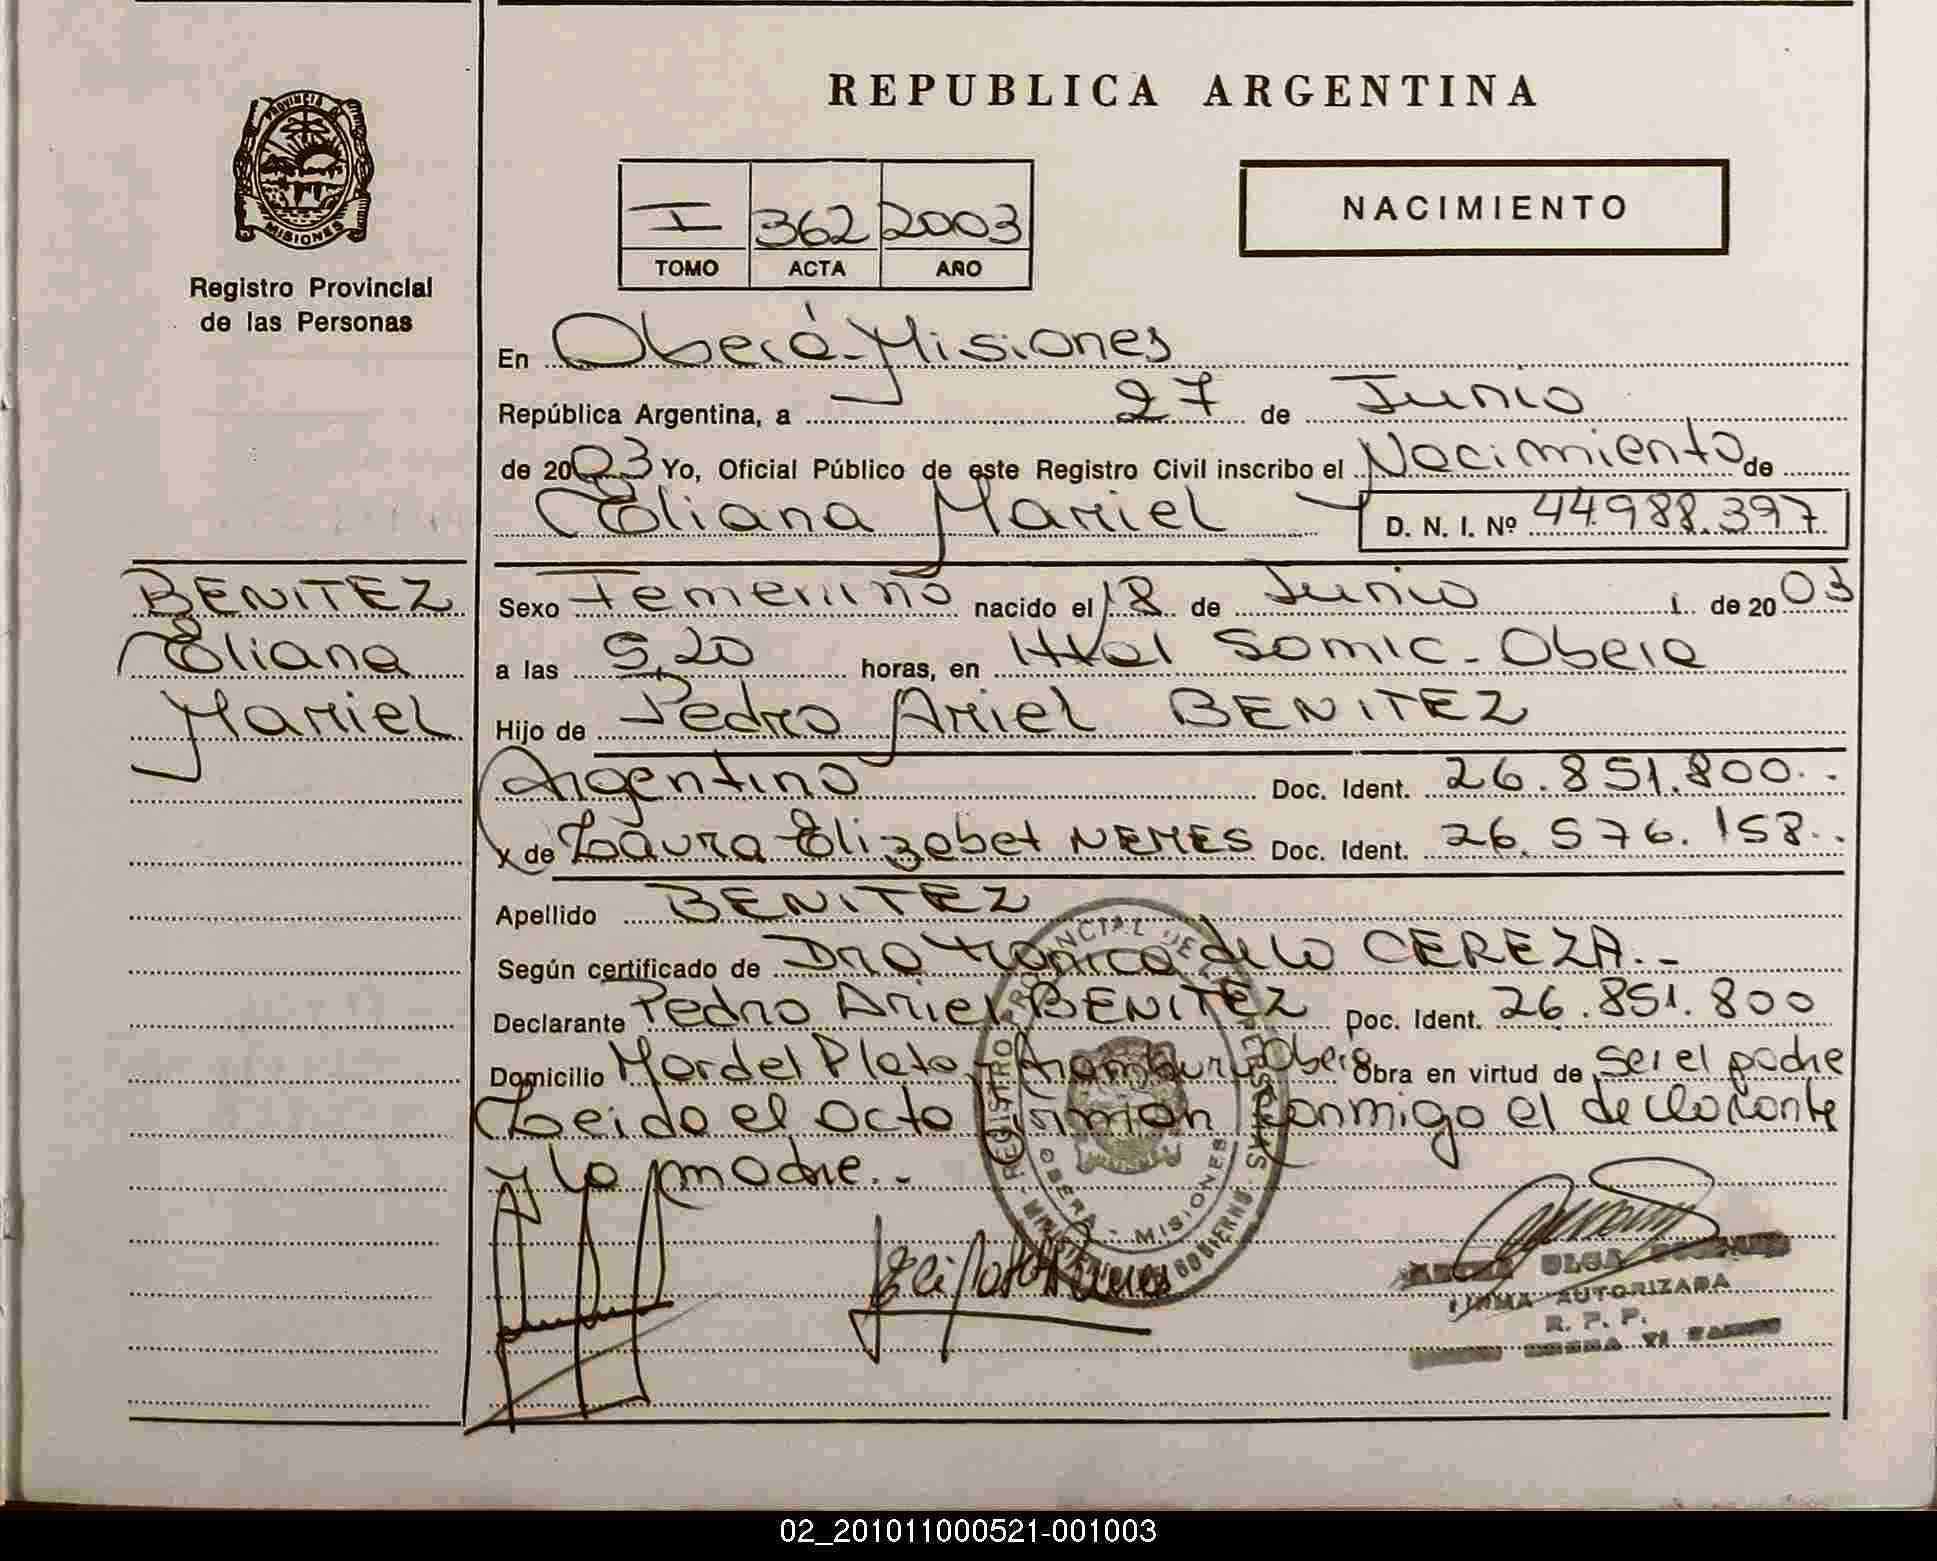 REPUBLICA ARGENTINA
PROVINCIA D MISIONES
Registro Provincial
de las Personas
NACIMIENTO
I 362 2003
TOMO ACTA AÑO
En Oberá-Misiones
República Argentina, a 27 de Junio
de 2003 Yo, Oficial Público de este Registro Civil inscribo el Nacimiento de
Eliana Mariel D. N. I. Nº 44.988.397
BENITEZ
Eliana
Mariel
Sexo Femenino nacido el 18 de Junio de 2003
a las 5,20 horas, en Htal Somic - Obera
Hijo de Pedro Ariel BENITEZ
Argentino Doc. Ident. 26.851.800..
y de Laura Elizabet NEMES Doc. Ident. 26.576.158..
Apellido BENITEZ
Según certificado de Dra Monica de la CEREZA.-
Declarante Pedro Ariel BENITEZ Doc. Ident. 26.851.800
Domicilio Mar del Plata y Aramburu Obera Obra en virtud de ser el padre
Leida el acta firman conmigo el declarante
y la madre..-
REGISTRO PROVINCIAL DE LAS PERSONAS
OBERA - MISIONES
OLGA
FIRMA AUTORIZADA
R. P. P.
02_201011000521-001003